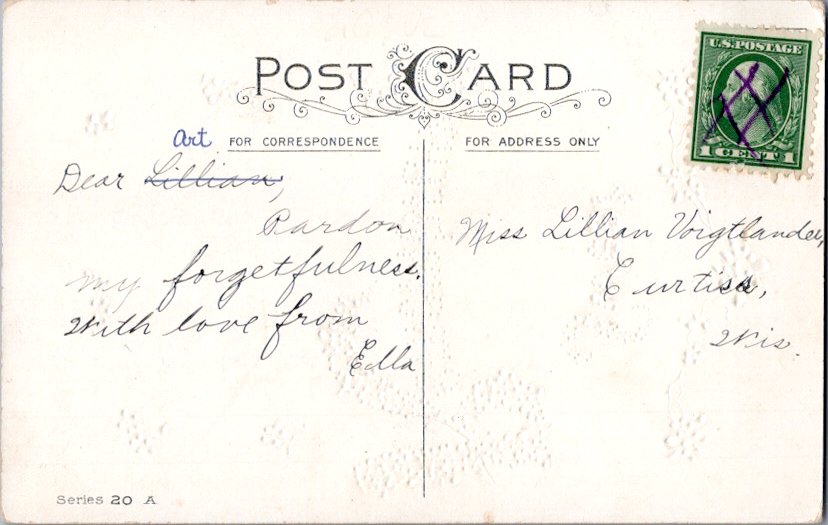 POST CARD
U.S. POSTAGE
1 CENT 1
FOR CORRESPONDENCE
FOR ADDRESS ONLY
Art
Dear Lillian,
Pardon
my forgetfulness.
With love from
Ella
Miss Lillian Voigtlander,
Curtiss,
Wis.
Series 20 A